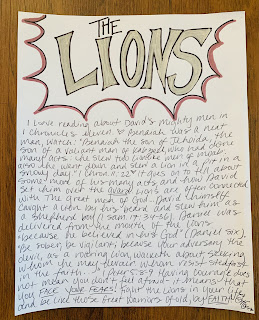 THE
LIONS
I love reading about David's mighty men in
1 Chronicles eleven. Benaiah was a neat
man, watch! "Benaiah the son of Jehoida, the
son of a valiant man of Kabzeel, who had done
many acts: he slew two lionlike men of Moab:
also he went down and slew a lion in a pit in a
snowy day." 1 Chron. 11:22 It goes on to tell about
some more of his many acts and how David
set him over the guard. Lions are often connected
with the great men of God. David himself
caught a lion by his beard and slew him as
a shepherd boy (1 Sam. 17:34-36). Daniel was
delivered from the mouth of the lions
"because he believed in his God" (Daniel six).
"Be sober, be vigilant; because your adversary the
devil, as a roaring lion, walketh about, seeking
whom he may devour: whom resist stedfast
in the faith..." 1 Peter 5:8-9 Having courage does
not make you don't feel afraid - it means that
you FACE YOUR FEARS. Fight the lions in your life
and be like those great warriors of old, by FAITH!